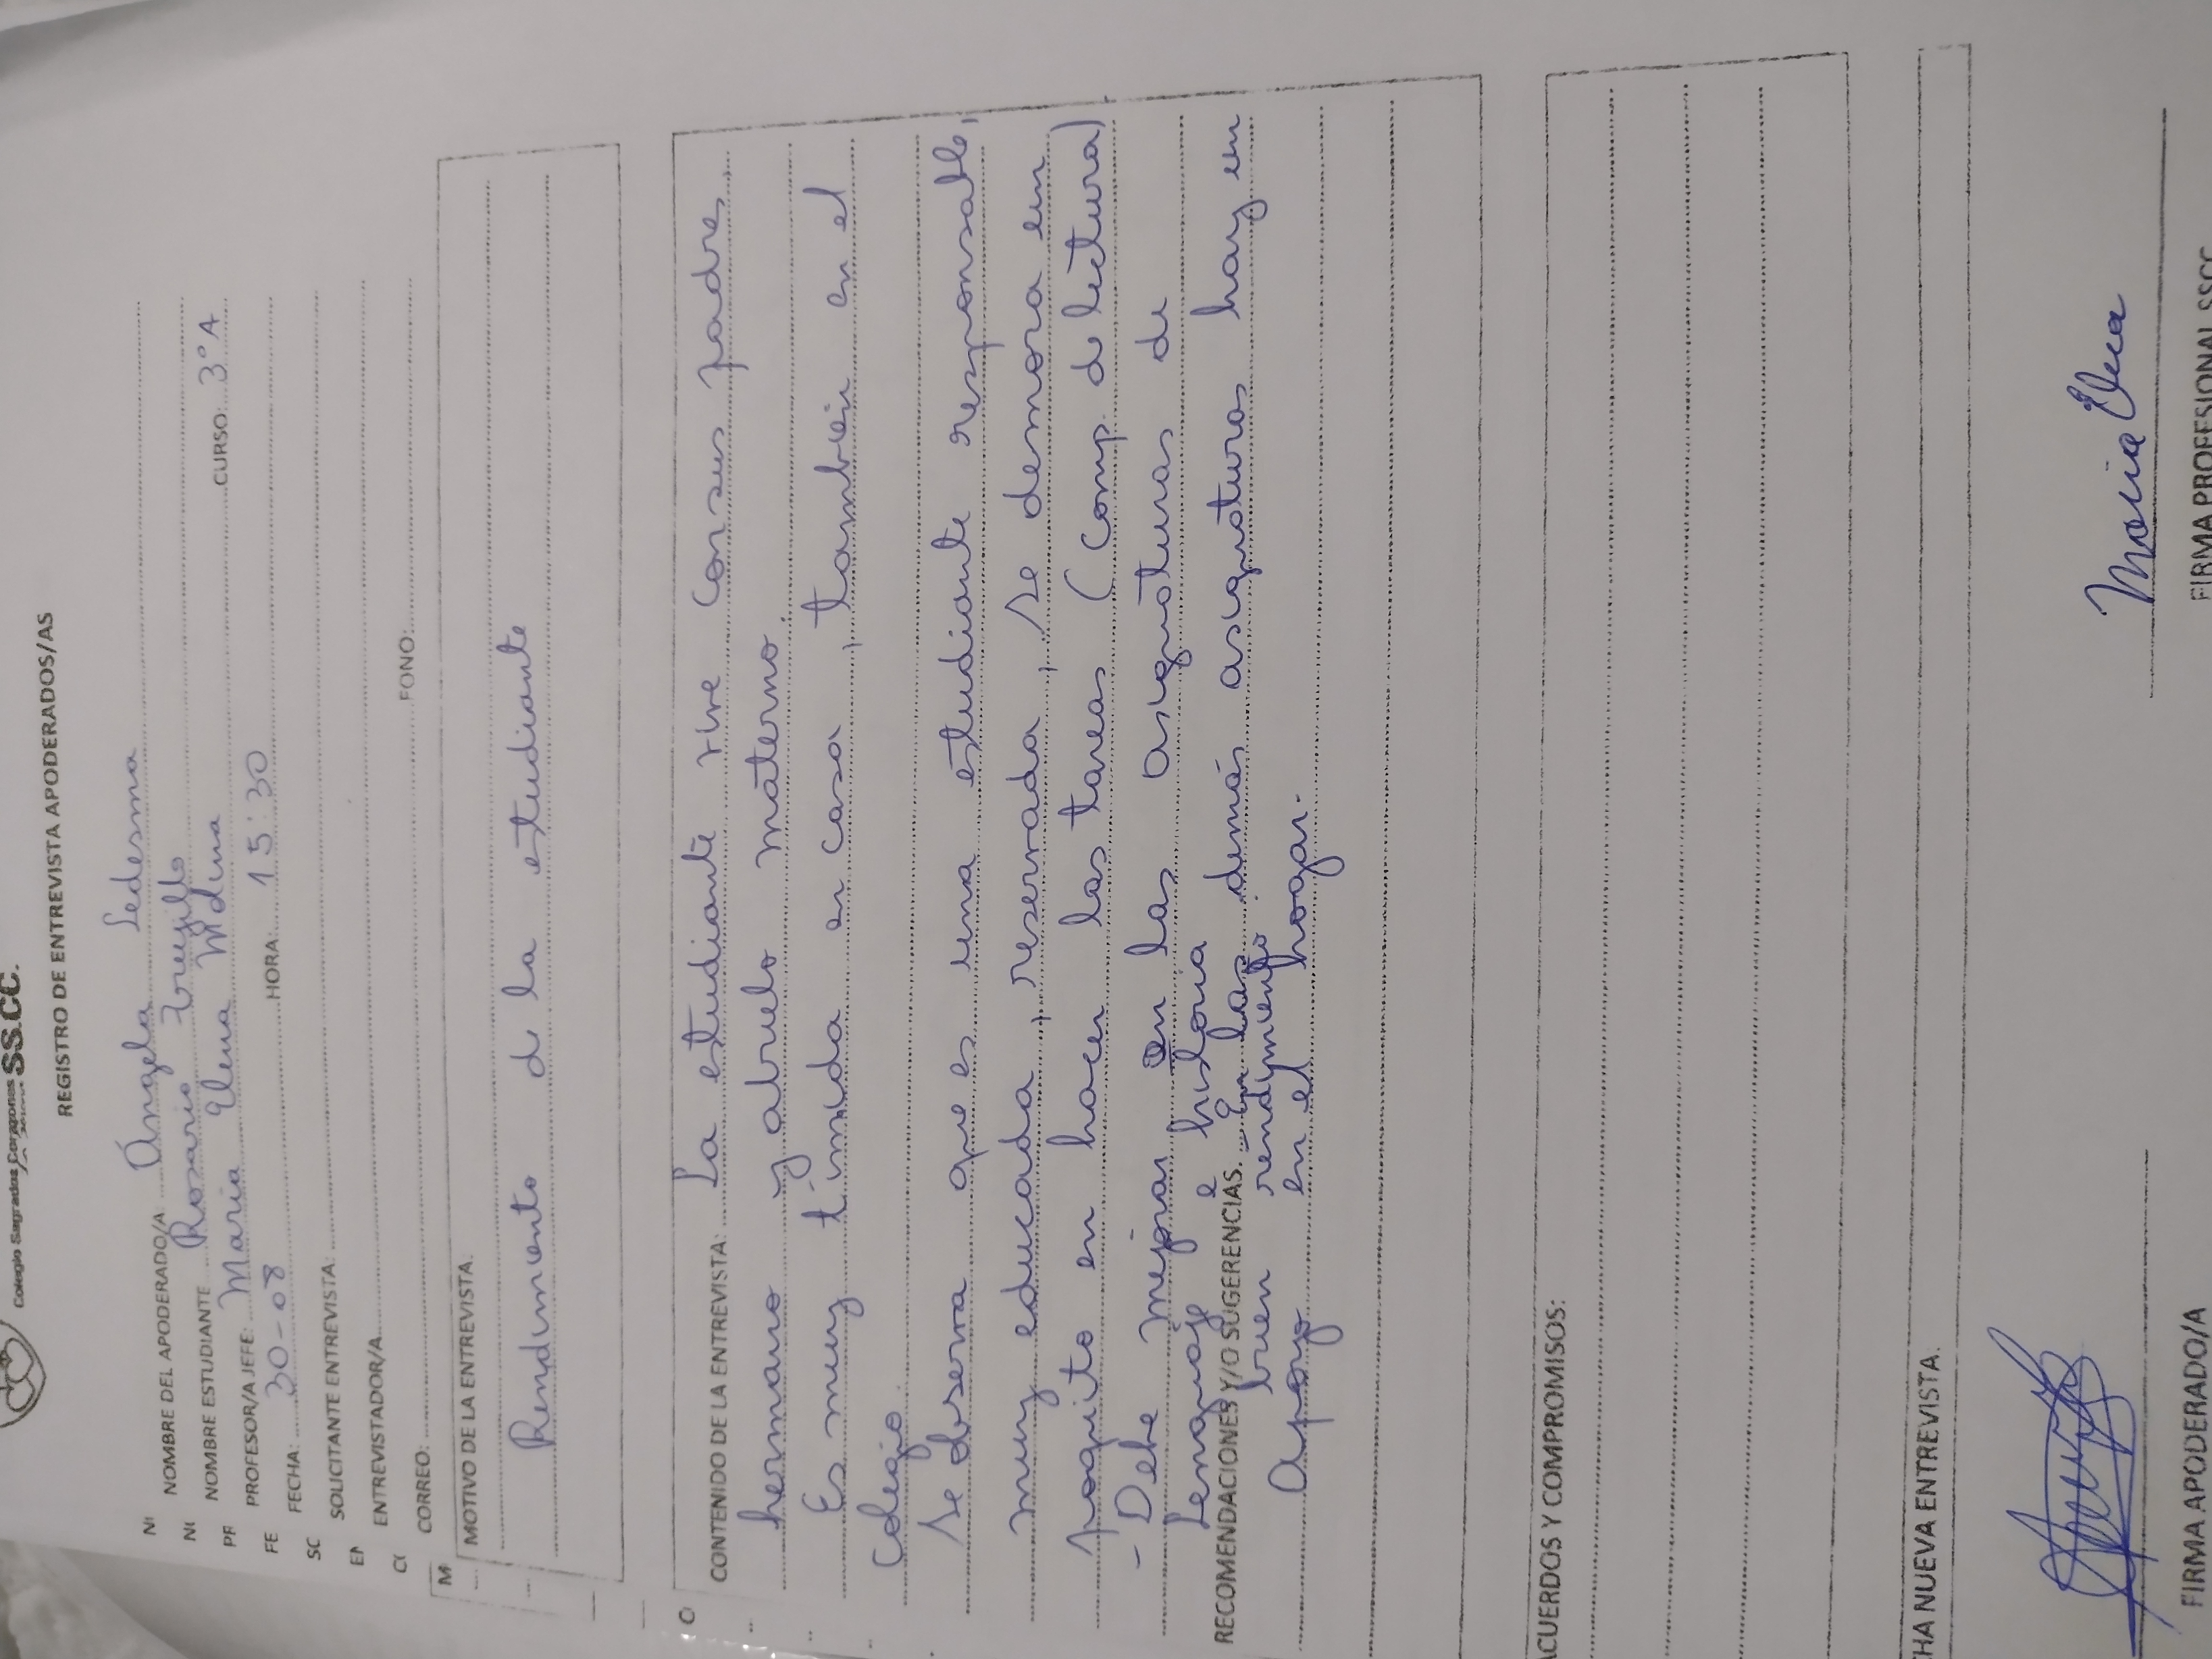 Colegio Sagrados Corazones SS.CC.
REGISTRO DE ENTREVISTA APODERADOS/AS
NOMBRE DEL APODERADO/A Ángela Ledesma
NOMBRE ESTUDIANTE Rosario Trujillo
PROFESOR/A JEFE: María Elena Mdina CURSO: 3°A
FECHA: 30-08 HORA: 15:30
SOLICITANTE ENTREVISTA:
ENTREVISTADOR/A
CORREO: FONO:
MOTIVO DE LA ENTREVISTA.
Rendimiento de la estudiante
CONTENIDO DE LA ENTREVISTA: La estudiante vive con sus padres,
hermano y abuelo materno.
Es muy tímida en casa, también en el
Colegio.
Se observa que es una estudiante responsable,
muy educada, reservada, se demora un
poquito en hacer las tareas (Comp. de lectura)
- Debe mejorar en las asignaturas de
Lenguaje e historia
RECOMENDACIONES Y/O SUGERENCIAS. En las demás asignaturas hay un
buen rendimiento.
Apoyo en el hogar.
ACUERDOS Y COMPROMISOS:
HA NUEVA ENTREVISTA.
María Elena
FIRMA APODERADO/A FIRMA PROFESIONAL SSCC